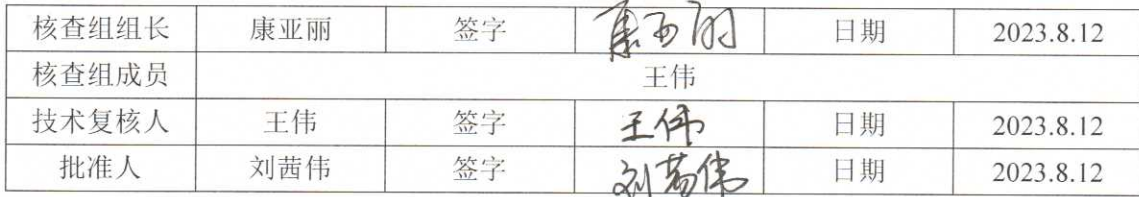 核查组组长 康亚丽 签字 康亚丽 日期 2023.8.12
核查组成员 王伟
技术复核人 王伟 签字 王伟 日期 2023.8.12
批准人 刘茜伟 签字 刘茜伟 日期 2023.8.12